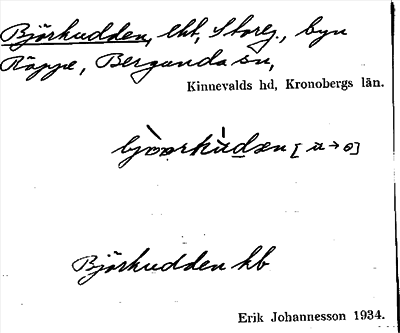 Björkudden, lht, Storeg., byn
Räppe, Bergunda sn,
Kinnevalds hd, Kronobergs län.
bjòorkùdæn [ u → ɵ]
Björkudden kb
Erik Johannesson 1934.